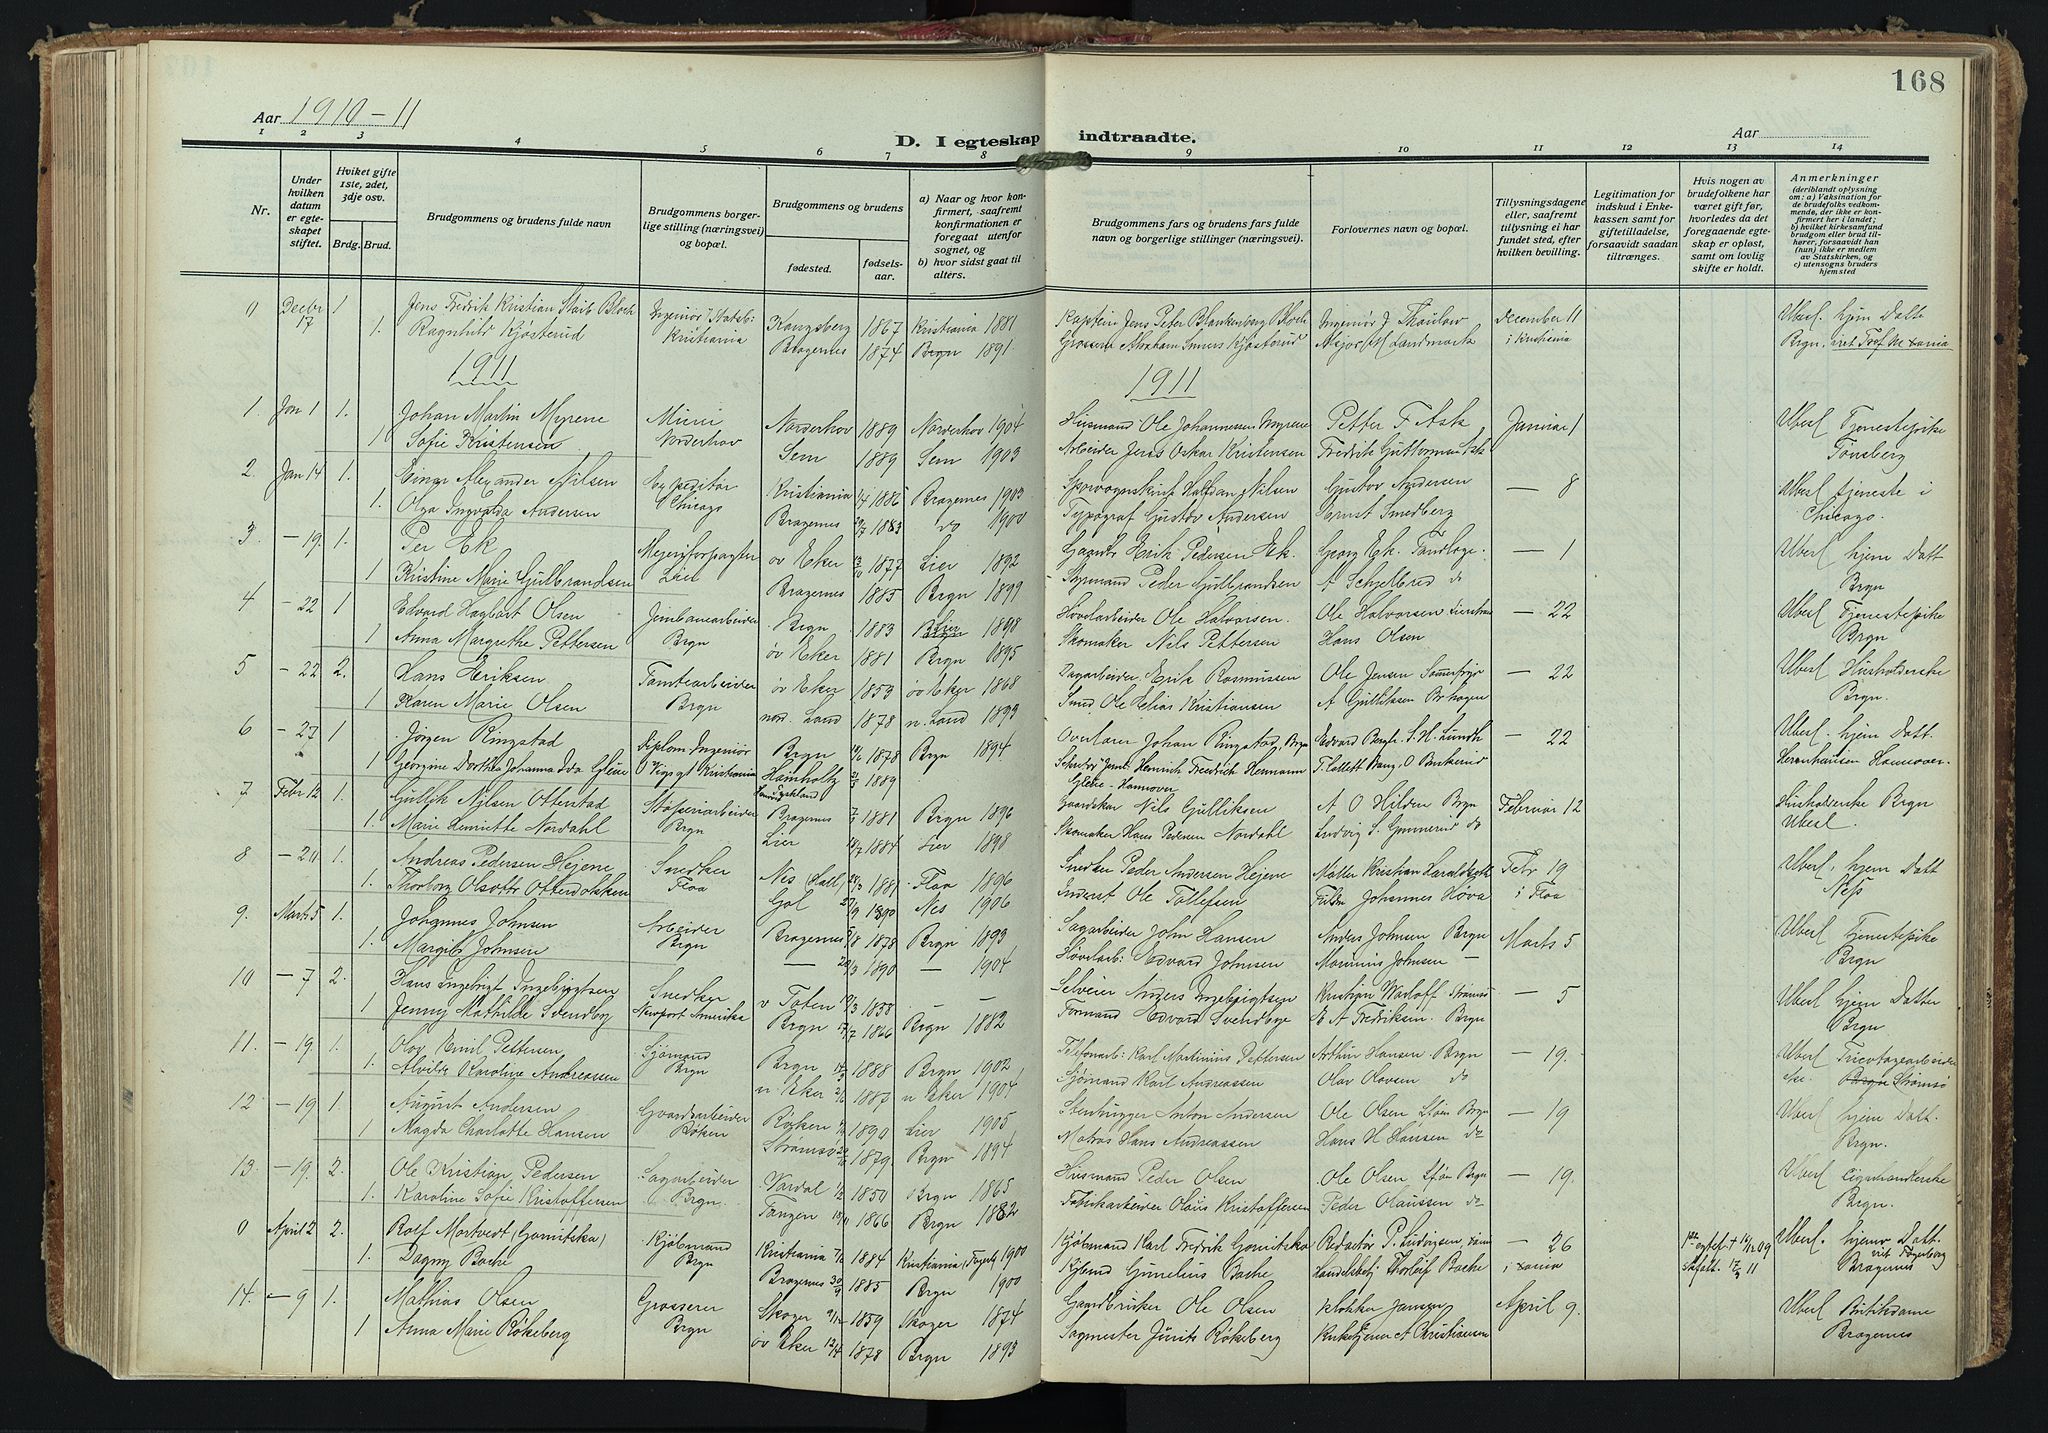 168
Aar 1910-11
Aar
D. I egteskap indtraadte.
1 2 3 4 5 6 7 8 9 10 11 12 13 14
Nr.
Under hvilken datum er egteskapet stiftet.
Hviket gifte 1ste, 2det, 3dje osv.
Brdg. Brud.
Brudgommens og brudens fulde navn
Brudgommens borgerlige stilling (næringsvei) og bopæl.
Brudgommens og brudens
fødested. fødselsaar.
a) Naar og hvor konfirmert, saafremt konfirmationen er foregaat utenfor sognet, og
b) hvor sidst gaat til alters.
Brudgommens fars og brudens fars fulde navn og borgerlige stillinger (næringsvei).
Forlovernes navn og bopæl.
Tillysningsdagene eller, saafremt tillysning ei har fundet sted, efter hvilken bevilling.
Legitimation for indskud i Enkekassen samt for giftetilladelse, forsaavidt saadan tiltrænges.
Hvis nogen av brudefolkene har været gift før, hvorledes da det foregaaende egteskap er opløst, samt om lovlig skifte er holdt.
Anmerkninger
(deriblandt oplysning om: a) Vaksination for de brudefolks vedkommende, der ikke er konfirmert her i landet;
b) hvilket kirkesamfund brudgom eller brud tilhører, forsaavidt han (hun) ikke er medlem av Statskirken, og
c) utensogns bruders hjemsted
0 Decbr 17 1 Jens Fredrik Kristian Stoib Bloch Ingeniør v Statsb: Kongsberg 1867 Kristiania 1881 Kaptein Jens Peter Blankenborg Bloch Ingeniør J Thaulow December 11 Uberl. hjem Datt
1. Ragnhild Kjøsterud Kristiania Bragernes 1874 Brgn 1891 Grosserer Abraham Kjøsterud Major M Landmark i Kristiania Brgn.
1911 1911
1. Jan 1 1. Johan Martin Myrene Murer Norderhov 1889 Norderhov 1904 Husmand Ole Johannessen Myrene Petter F Ask Januar 1 Uberl Tjenestepike
1 Sofie Kristensen Norderhov Sem 1889 Sem 1903 Arbeider Jens Oskar Kristensen Fredrik Guttorman Ask Tønsberg
2 Jan 14 1. Einar Alexander Nilsen Expeditør Kristiania 1882 Bragernes 1903 Halfdan Nilsen Gustov Andersen — 8 Uberl tjeneste i
1. Olga Ingvalda Andersen Chicago Bragernes 1883 do 1900 Typograf Gustov Andersen Ernst Smedberg Chicago.
3 — 19. 1. Per Ek Mejeriforpagter øv Eker 1877 Lier 1892 Gaardbr Erik Pedersen Ek. Georg Ek. Tandlæge. — 1 Uberl hjem Datt
1 Kristine Marie Gulbrandsen Lier Bragernes 1885 Brgn 1899 Sagmand Peder Gulbrandsen A Schjelbred do Brgn
4 — 22 1 Edvard Hagbart Olsen Jernbanearbeider Brgn 1883 Lier 1898 Høvelarbeider Ole Halvorsen. Ole Halvorsen Lierstran — 22 Uberl Tjenestepike
1 Anna Margrethe Pettersen Brgn øv Eker 1881 Brgn 1895 Skomaker Nils Pettersen Hans Olsen Brgn
5 — 22 2. Hans Eriksen Tomtearbeider øv Eker 1853 øv Eker 1868 Dagarbeider Erik Rasmussen Ole Jensen — 22 Uberl Husholderske
1 Karen Marie Olsen Brgn nor. Land 1878 n. Land 1893 Smed Ole Helias Kristiansen A Gulliksen Brgn.
6 — 27 1 Jørgen Ringstad Diplom Ingeniør Brgn 1878 Brgn 1894 Overlærer Johan Ringstad, Brgn Edvard Bergh. S. H. Lundh — 22 Uberl. hjem Datt.
1 Georgine Dorthea Johanna Ida Glene Kristiania Hamholtz 1889 Heinrich Friedrich Hermann Glene - Hannover T Collett Bang. Herrenhausen Hannover.
7 Febr 12 1. Gullik Nilsen Otterstad Brgn Bragernes 1881 Brgn 1896 Gaardskar Nils Gulliksen A O Hilden Brgn Februar 12 Husholderske Brgn
1. Marie Henriette Nordahl Lier 1884 Lier 1898 Skomaker Hans Pedersen Nordahl Ludvig S. Gommerud do Uberl.
8 — 20 1. Andreas Pedersen Hejene Snedker Nes (Hall) 1881 Flaa 1896 Snedker Peder Andersen Hejene Møller Kristian Febr 19 Uberl. hjem Datt
1. Thorborg Olsdtr Otterdolsken Flaa Gol 27/9 1890 Nes 1906 Inderst Ole Tollefsen Johannes Høva i Flaa Nes
9. Marts 5 1. Johannes Johnsen Arbeider Bragernes 1878 Brgn 1893 Sagarbeider John Hansen Anders Johnsen Brgn Marts 5 Uberl Tjenestepike
1. Margit Johnsen Brgn — 1890 — 1904 Høvelarb: Edvard Johnsen Marinius Johnsen — Brgn
10 — 7 2. Hans Ingebrigt Ingebrigtsen Snedker v Toten 1858 — — Selveier Anders Ingebrigtsen Kristian Warloff Strømsø — 5 Uberl hjem Datter
1 Jenny Mathilde Svendby Newport Amerika Brgn 17/7 1866 Brgn 1882 Formand Edvard Svendbye E A Fredriksen. Brgn Brgn
11. — 19. 1. Olov Emil Pettersen Sjømand Brgn 1888 Brgn 1902 Telefonarb: Karl Martinius Pettersen Arthur Hansen Brgn — 19. Uberl Tricotagearbeider
1. Alvilde Karoline Andreassen Brgn n Eker 1887 n Eker 1904 Sjømand Karl Andreassen Olav Olavsen do ske. Strømsø
12 — 19 1. August Andersen Gaardsarbeider Røken 1890 Lier 1905 Stenhugger Anton Andersen Ole Olsen Støa Brgn — 19 Uberl hjem Datt.
1 Magda Charlotte Hansen Røken Strømsø 1879. Brgn 1894 Matros Hans Andreassen Hans H Hansen do Brgn.
13. — 19. 2. Ole Kristian Pedersen Sagarbeider Vardal 1850 Brgn 1865 Husmand Peder Olsen Ole Olsen Støa Brgn — 19. Uberl
1. Karoline Sofie Kristoffersen Brgn. Tangen 1866 Brgn 1882 Fabrikarbeider Olaus Kristoffersen Peder Olaussen do Brgn.
0 April 2 2. Rolf Mortvedt (Gomitska) Kjøbmand Kristiania 1884 Kristiania (Fagerb) 1900 Kjøbmand Karl Fredrik Gomitska Redaktør — 26 Uberl. hjem Datt.
1. Dagny Bache Brgn Bragernes 30/9 1885 Brgn 1900 Kjbmd Gunelius Bache Handelsbetj Thorleif Bache i Xania Bragernes
14. — 9 1. Mathias Olsen Grosserer Skoger 1859 Skoger 1874 Gaardbruker Ole Olsen Klokker Jansen April 9. Uberl Butikdame
1 Anna Marie Røkeberg Brgn øv Eker 12/4 1878 Brgn 1893 Sagmester Jurits Røkeberg Kirketjener A Kristiansen Bragernes